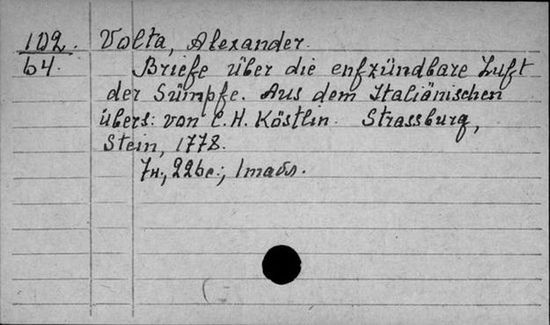 102.
64.
Volta, Alexander.
Briefe über die entzündbare Luft
der Sümpfe. Aus dem Italiänischen
übers. von C. H. Köstlin. Strassburg,
Stein, 1778.